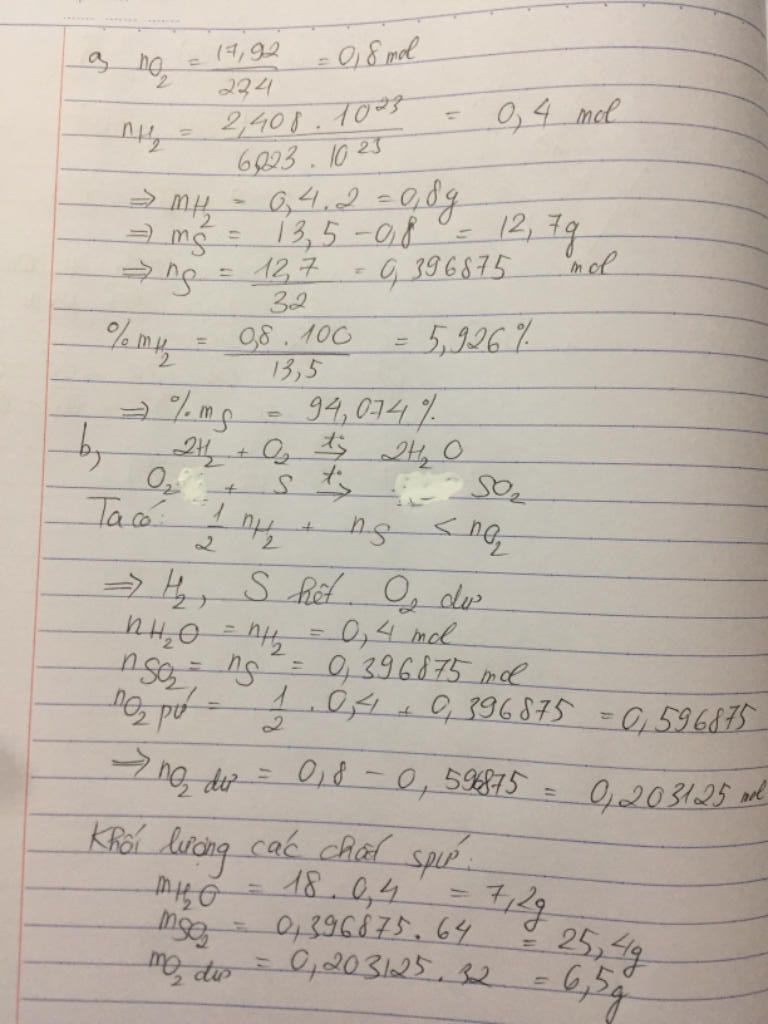 a, nO₂ = 17,92 / 22,4 = 0,8 mol
nH₂ = 2,408 . 10²³ / 6,023 . 10²³ = 0,4 mol
⇒ mH₂ = 0,4 . 2 = 0,8g
⇒ mS = 13,5 - 0,8 = 12,7g
⇒ nS = 12,7 / 32 = 0,396875 mol
%mH₂ = 0,8 . 100 / 13,5 = 5,926%
⇒ %mS = 94,074%
b, 2H₂ + O₂ t°→ 2H₂O
O₂ + S t°→ SO₂
Ta có: 1/2 nH₂ + nS < nO₂
⇒ H₂, S hết. O₂ dư
nH₂O = nH₂ = 0,4 mol
nSO₂ = nS = 0,396875 mol
nO₂ pứ = 1/2 . 0,4 + 0,396875 = 0,596875
⇒ nO₂ dư = 0,8 - 0,596875 = 0,203125 mol
Khối lượng các chất spứ:
mH₂O = 18 . 0,4 = 7,2g
mSO₂ = 0,396875 . 64 = 25,4g
mO₂ dư = 0,203125 . 32 = 6,5g